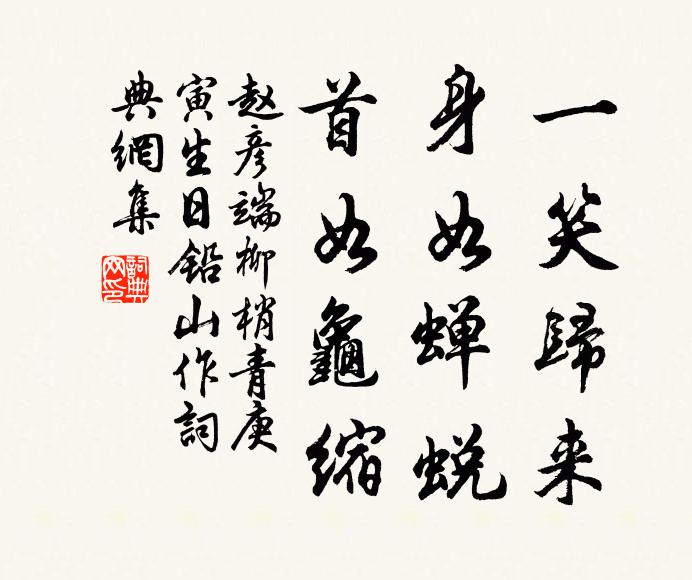 一笑歸来
身如蝉蜕
首如龜缩
赵彦端柳梢青庚
寅生日鉛山作詞
典網集
詞典网印